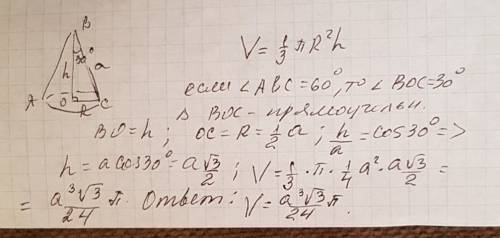 B
30°
a
h
A
O
R
C
V = 1/3 πR²h
если ∠ABC=60°, то ∠BOC=30°
△ BOC - прямоугольн.
BO = h; OC = R = 1/2 a; h/a = cos30° =>
h = a cos30° = a√3/2; V = 1/3 · π · 1/4 a² · a√3/2 =
= a³√3/24 π. Ответ: V = a³√3/24 π.